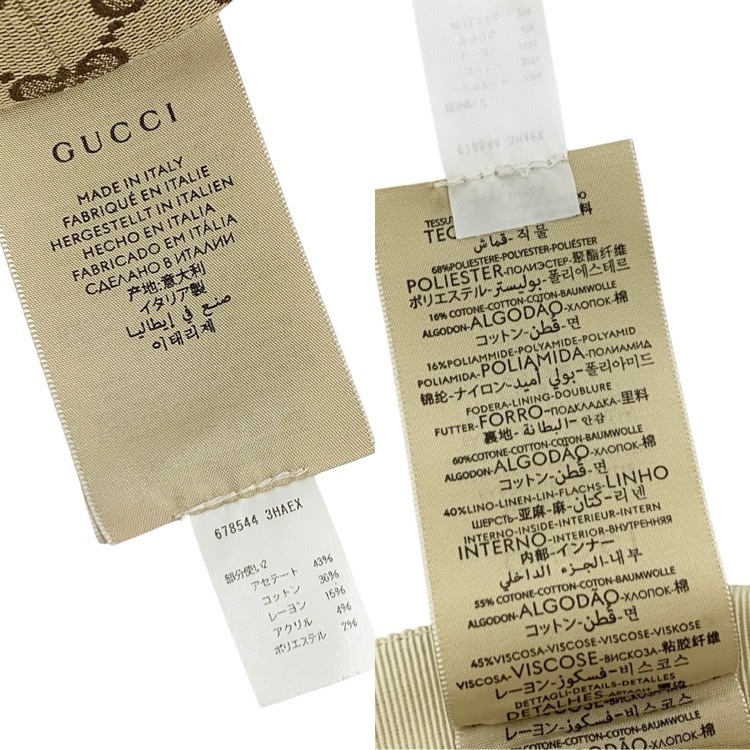 GUCCI
MADE IN ITALY
FABRIQUÉ EN ITALIE
HERGESTELLT IN ITALIEN
HECHO EN ITALIA
FABRICADO EM ITÁLIA
СДЕЛАНО В ИТАЛИИ
产地:意大利
イタリア製
صنع في إيطاليا
이태리제
678544 3HAEX
部分使い2
アセテート 43%
コットン 36%
レーヨン 15%
アクリル 4%
ポリエステル 2%
678544 3HAEX
قماش-직물
68%POLIESTERE-POLYESTER-POLIÉSTER
POLIESTER-ПОЛИЭСТЕР-聚酯纤维
ポリエステル-بوليستر-폴리에스테르
16% COTONE-COTTON-COTON-BAUMWOLLE
ALGODON-ALGODÃO-ХЛОПОК-棉
コットン-قطن-면
16%POLIAMMIDE-POLYAMIDE-POLYAMID
POLIAMIDA-POLIAMIDA-ПОЛИАМИД
锦纶-ナイロン-بولي أميد-폴리아미드
FODERA-LINING-DOUBLURE
FUTTER-FORRO-ПОДКЛАДКА-里料
裏地-البطانة-안감
60%COTONE-COTTON-COTON-BAUMWOLLE
ALGODON-ALGODÃO-ХЛОПОК-棉
コットン-قطن-면
40%LINO-LINEN-LIN-FLACHS-LINHO
ШЕРСТЬ-亚麻-麻-كتان-리넨
INTERNO-INSIDE-INTERIEUR-INTERN
INTERNO-INTERIOR-ВНУТРЕННЯЯ
内部-インナー
الجزء الداخلي-내부
55% COTONE-COTTON-COTON-BAUMWOLLE
ALGODON-ALGODÃO-ХЛОПОК-棉
コットン-قطن-면
45%VISCOSA-VISCOSE-VISCOSE-VISKOSE
VISCOSA-VISCOSE-ВИСКОЗА-粘胶纤维
レーヨン-فسكوز-비스코스
DETTAGLI-DETAILS-DETALLES